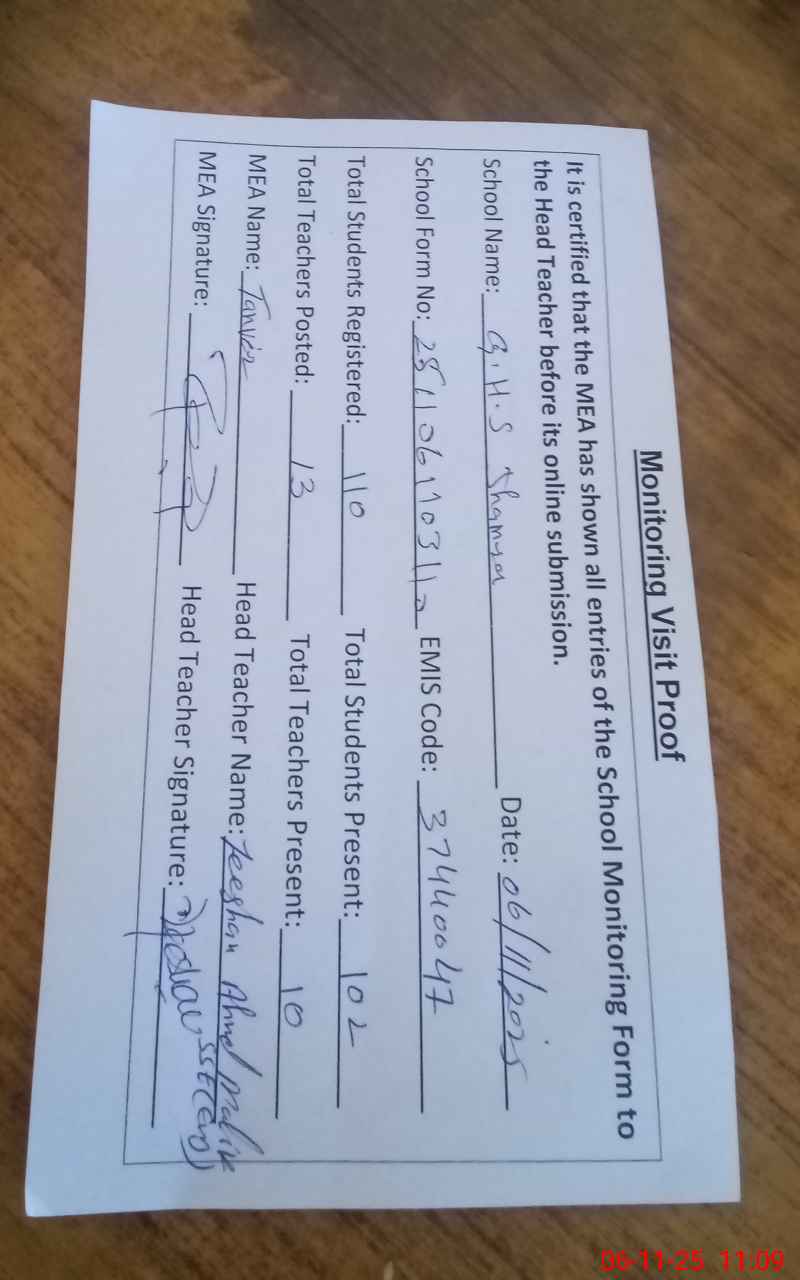 Monitoring Visit Proof
It is certified that the MEA has shown all entries of the School Monitoring Form to
the Head Teacher before its online submission.
School Name: G.H.S Date: 06/11/2025
School Form No: EMIS Code: 37440047
Total Students Registered: 110 Total Students Present: 102
Total Teachers Posted: 13 Total Teachers Present: 10
MEA Name: Tanvir Head Teacher Name: Zeeshan Ahmed Malik
MEA Signature: Head Teacher Signature: SST(Eng)
06-11-25 11:09